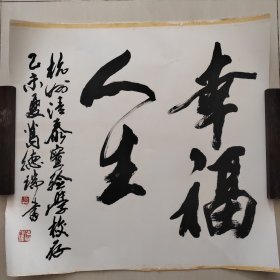 幸福
人生
杭州清泰实验学校存
乙未夏 葛德瑞书